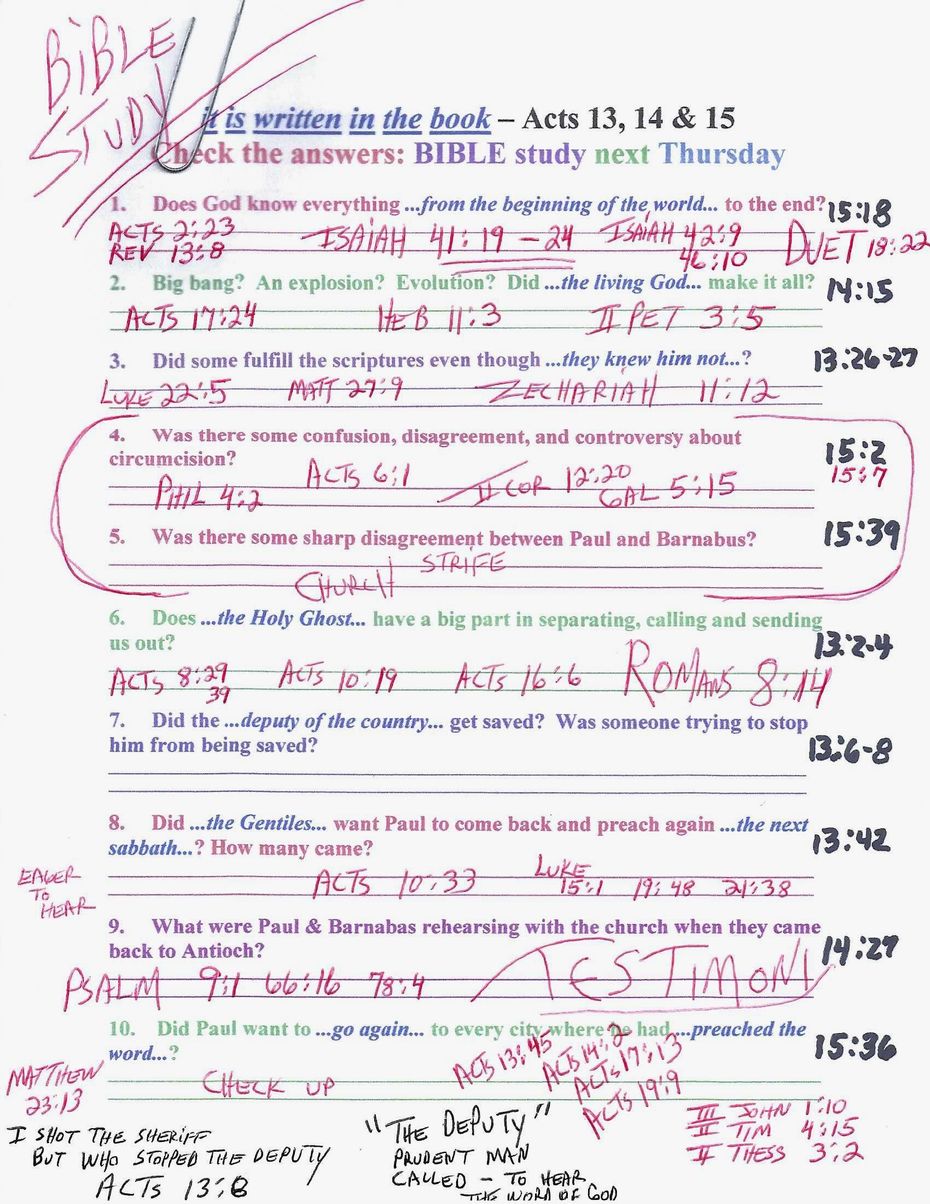 BIBLE
STUDY
it is written in the book – Acts 13, 14 & 15
Check the answers: BIBLE study next Thursday
1. Does God know everything ...from the beginning of the world... to the end? 15:18
ACTS 2:23 ISAIAH 41:19-24 ISAIAH 42:9 DUET 18:22
REV 13:8 46:10
2. Big bang? An explosion? Evolution? Did ...the living God... make it all? 14:15
ACTS 17:24 HEB 11:3 II PET 3:5
3. Did some fulfill the scriptures even though ...they knew him not...? 13:26-27
LUKE 22:5 MATT 27:9 ZECHARIAH 11:12
4. Was there some confusion, disagreement, and controversy about
circumcision? 15:2
15:7
PHIL 4:2 ACTS 6:1 II COR 12:20
GAL 5:15
5. Was there some sharp disagreement between Paul and Barnabus? 15:39
CHURCH STRIFE
6. Does ...the Holy Ghost... have a big part in separating, calling and sending
us out? 13:2-4
ACTS 8:29 ACTS 10:19 ACTS 16:6 ROMANS 8:14
39
7. Did the ...deputy of the country... get saved? Was someone trying to stop
him from being saved? 13:6-8
8. Did ...the Gentiles... want Paul to come back and preach again ...the next
sabbath...? How many came? 13:42
EAGER
TO
HEAR
ACTS 10:33 LUKE 15:1 19:48 21:38
9. What were Paul & Barnabas rehearsing with the church when they came
back to Antioch? 14:27
PSALM 9:1 66:16 78:4 TESTIMONY
10. Did Paul want to ...go again... to every city where he had ...preached the
word...? 15:36
CHECK UP
ACTS 13:45
ACTS 14:2
ACTS 17:13
ACTS 19:9
MATTHEW
23:13
III JOHN 1:10
II TIM 4:15
II THESS 3:2
I SHOT THE SHERIFF
BUT WHO STOPPED THE DEPUTY
ACTS 13:8
"THE DEPUTY"
PRUDENT MAN
CALLED - TO HEAR
THE WORD OF GOD